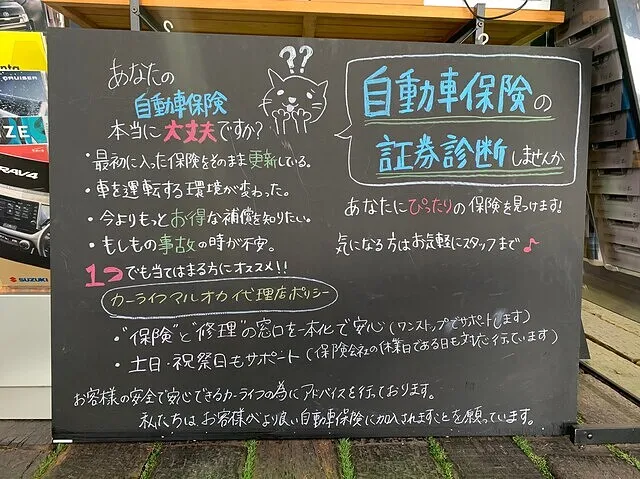 あなたの
自動車保険
本当に大丈夫ですか?
??
・最初に入った保険をそのまま更新している。
・車を運転する環境が変わった。
・今よりもっとお得な補償を知りたい。
・もしもの事故の時が不安。
1つでも当てはまる方にオススメ!!
自動車保険の
証券診断しませんか
あなたにぴったりの保険を見つけます!
気になる方はお気軽にスタッフまで♪
カーライフマルオカ代理店ポリシー
・"保険"と"修理"の窓口を一本化で安心(ワンストップでサポートします)
・土日・祝祭日もサポート(保険会社の休業日である日も対応行っています)
お客様の安全で安心できるカーライフの為にアドバイスを行っております。
私たちは、お客様がより良い自動車保険に加入されますことを願っています。
CRUISER
ZE
RAV4
SUZUKI